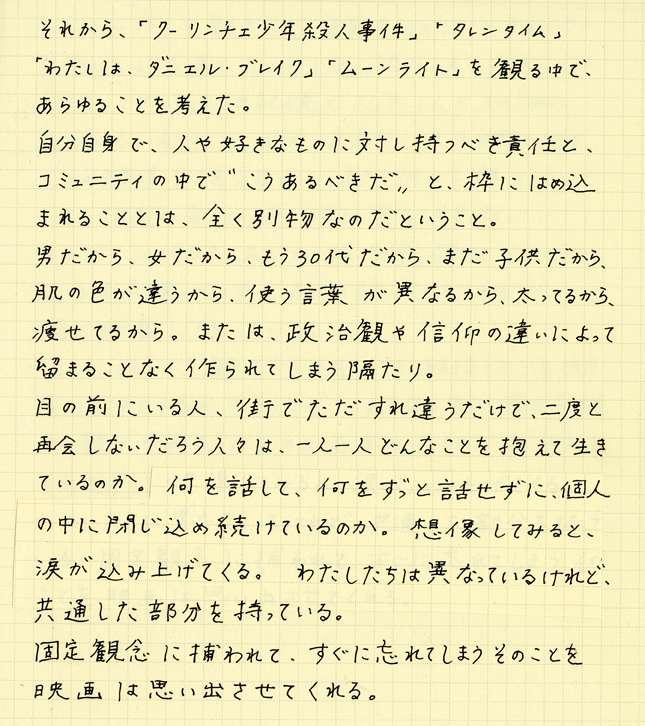 それから、「クーリンチェ少年殺人事件」「タレンタイム」
「わたしは、ダニエル・ブレイク」「ムーンライト」を観る中で、
あらゆることを考えた。
自分自身で、人や好きなものに対し持つべき責任と、
コミュニティの中で〝こうあるべきだ〟と、枠にはめ込
まれることとは、全く別物なのだということ。
男だから、女だから、もう30代だから、まだ子供だから、
肌の色が違うから、使う言葉が異なるから、太ってるから、
痩せてるから。または、政治観や信仰の違いによって
留まることなく作られてしまう隔たり。
目の前にいる人、街でただすれ違うだけで、二度と
再会しないだろう人々は、一人一人どんなことを抱えて生き
ているのか。何を話して、何をずっと話せずに、個人
の中に閉じ込め続けているのか。想像してみると、
涙が込み上げてくる。わたしたちは異なっているけれど、
共通した部分を持っている。
固定観念に捕われて、すぐに忘れてしまうそのことを
映画は思い出させてくれる。